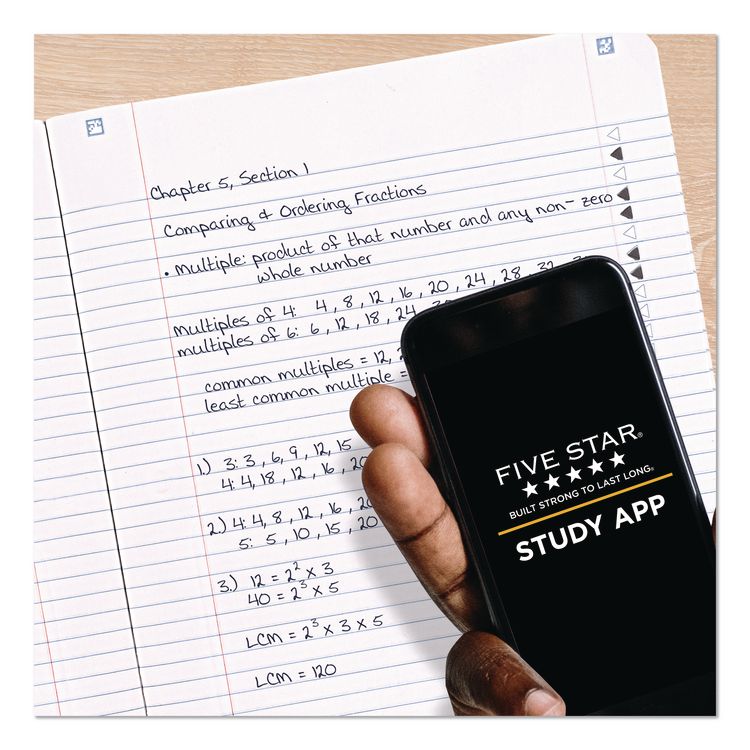 Chapter 5, Section 1
Comparing & Ordering Fractions
• multiple: product of that number and any non-zero
whole number
multiples of 4: 4, 8, 12, 16, 20, 24, 28, 32,
multiples of 6: 6, 12, 18, 24,
common multiples = 12,
least common multiple =
1.) 3: 3, 6, 9, 12, 15
4: 4, 18, 12, 16, 20
2.) 4: 4, 8, 12, 16, 20
5: 5, 10, 15, 20
3.) 12 = 2² x 3
40 = 2³ x 5
LCM = 2³ x 3 x 5
LCM = 120
FIVE STAR®
BUILT STRONG TO LAST LONG®
STUDY APP